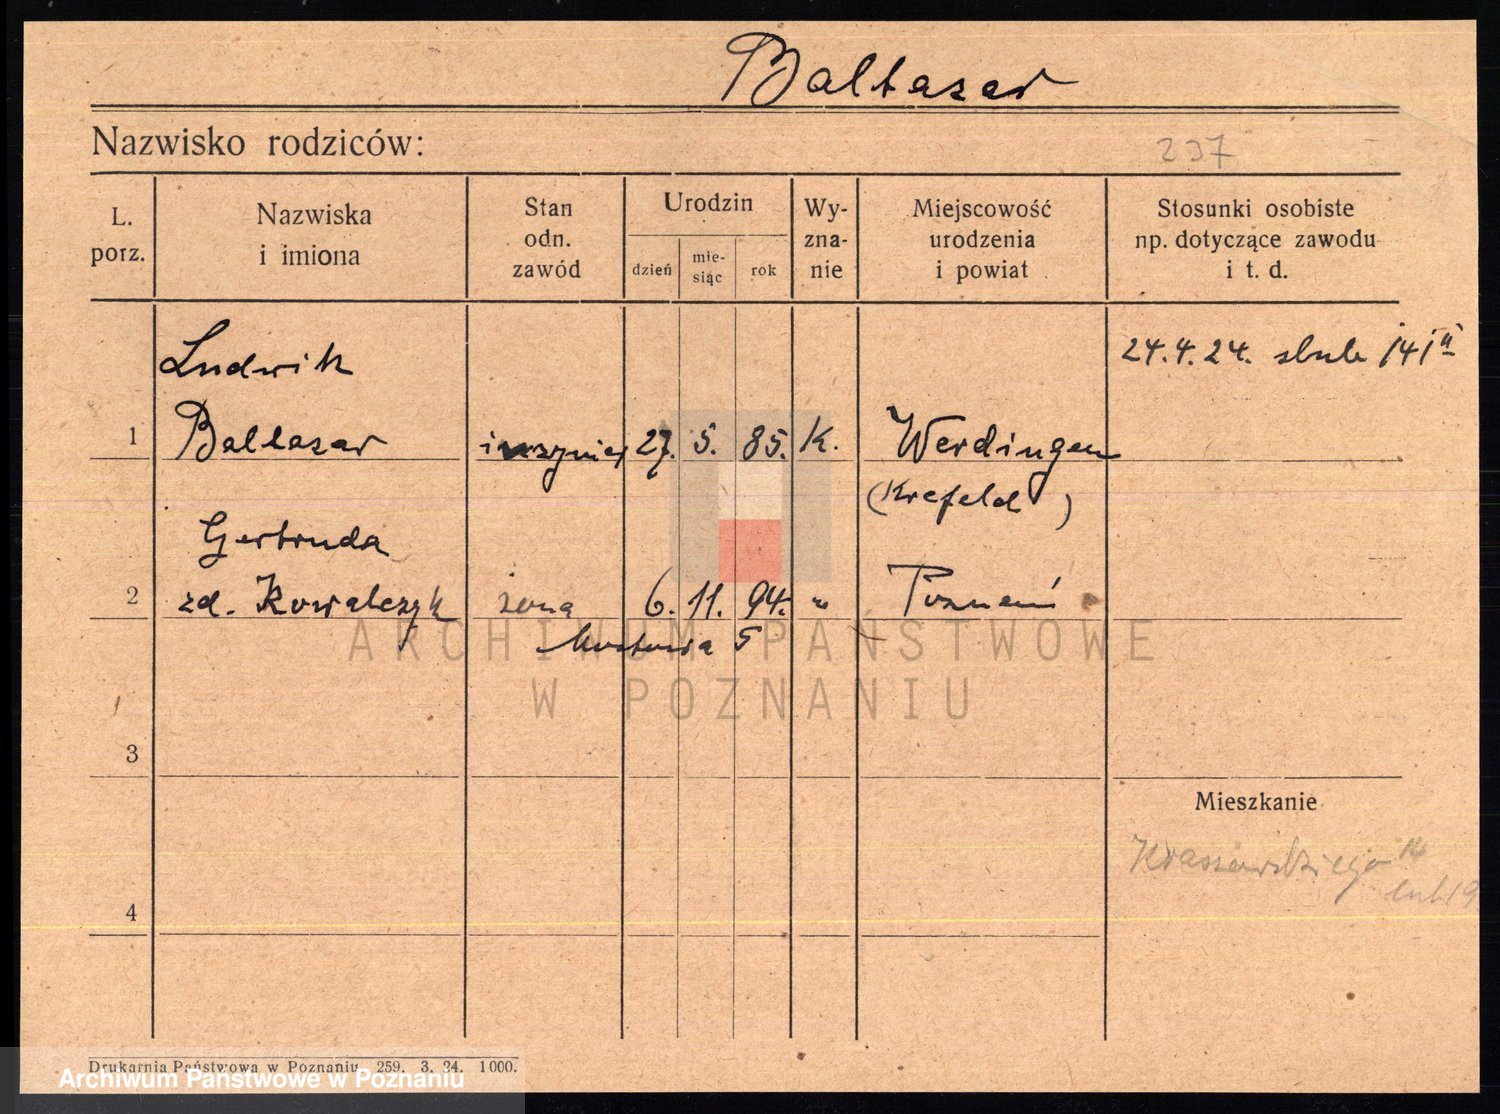 Baltazar
Nazwisko rodziców:
237
L. porz.
Nazwiska i imiona
Stan odn. zawód
Urodzin
dzień
mie-
siąc
rok
Wy-
zna-
nie
Miejscowość urodzenia i powiat
Stosunki osobiste np. dotyczące zawodu i t. d.
Ludwik
24.4.24.
1 Baltazar inżynier 27. 5. 85. K. Werdingen
(Krefeld)
Gertruda
2 zd. Kowalczyk żona 6. 11. 94. " Poznań
Mostowa 5
ARCHIWUM PAŃSTWOWE
W POZNANIU
3
Mieszkanie
Kraszewskiego 14
4
Drukarnia Państwowa w Poznaniu. 259. 3. 24. 1000.
Archiwum Państwowe w Poznaniu